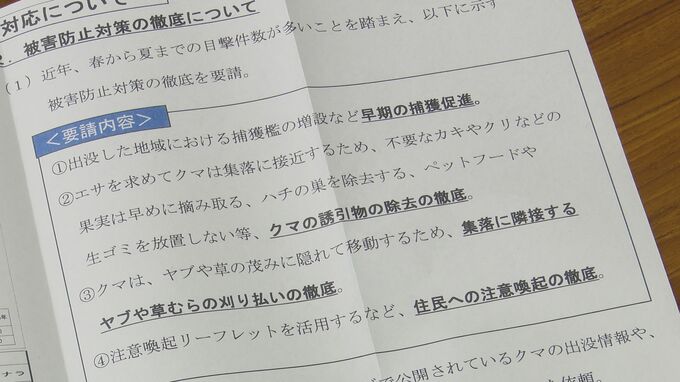 対応について
被害防止対策の徹底について
(1) 近年、春から夏までの目撃件数が多いことを踏まえ、以下に示す
被害防止対策の徹底を要請。
＜要請内容＞
①出没した地域における捕獲檻の増設など早期の捕獲促進。
②エサを求めてクマは集落に接近するため、不要なカキやクリなどの
果実は早めに摘み取る、ハチの巣を除去する、ペットフードや
生ゴミを放置しない等、クマの誘引物の除去の徹底。
③クマは、ヤブや草の茂みに隠れて移動するため、集落に隣接する
ヤブや草むらの刈り払いの徹底。
④注意喚起リーフレットを活用するなど、住民への注意喚起の徹底。
で公開されているクマの出没情報や、
依頼。
ナラ